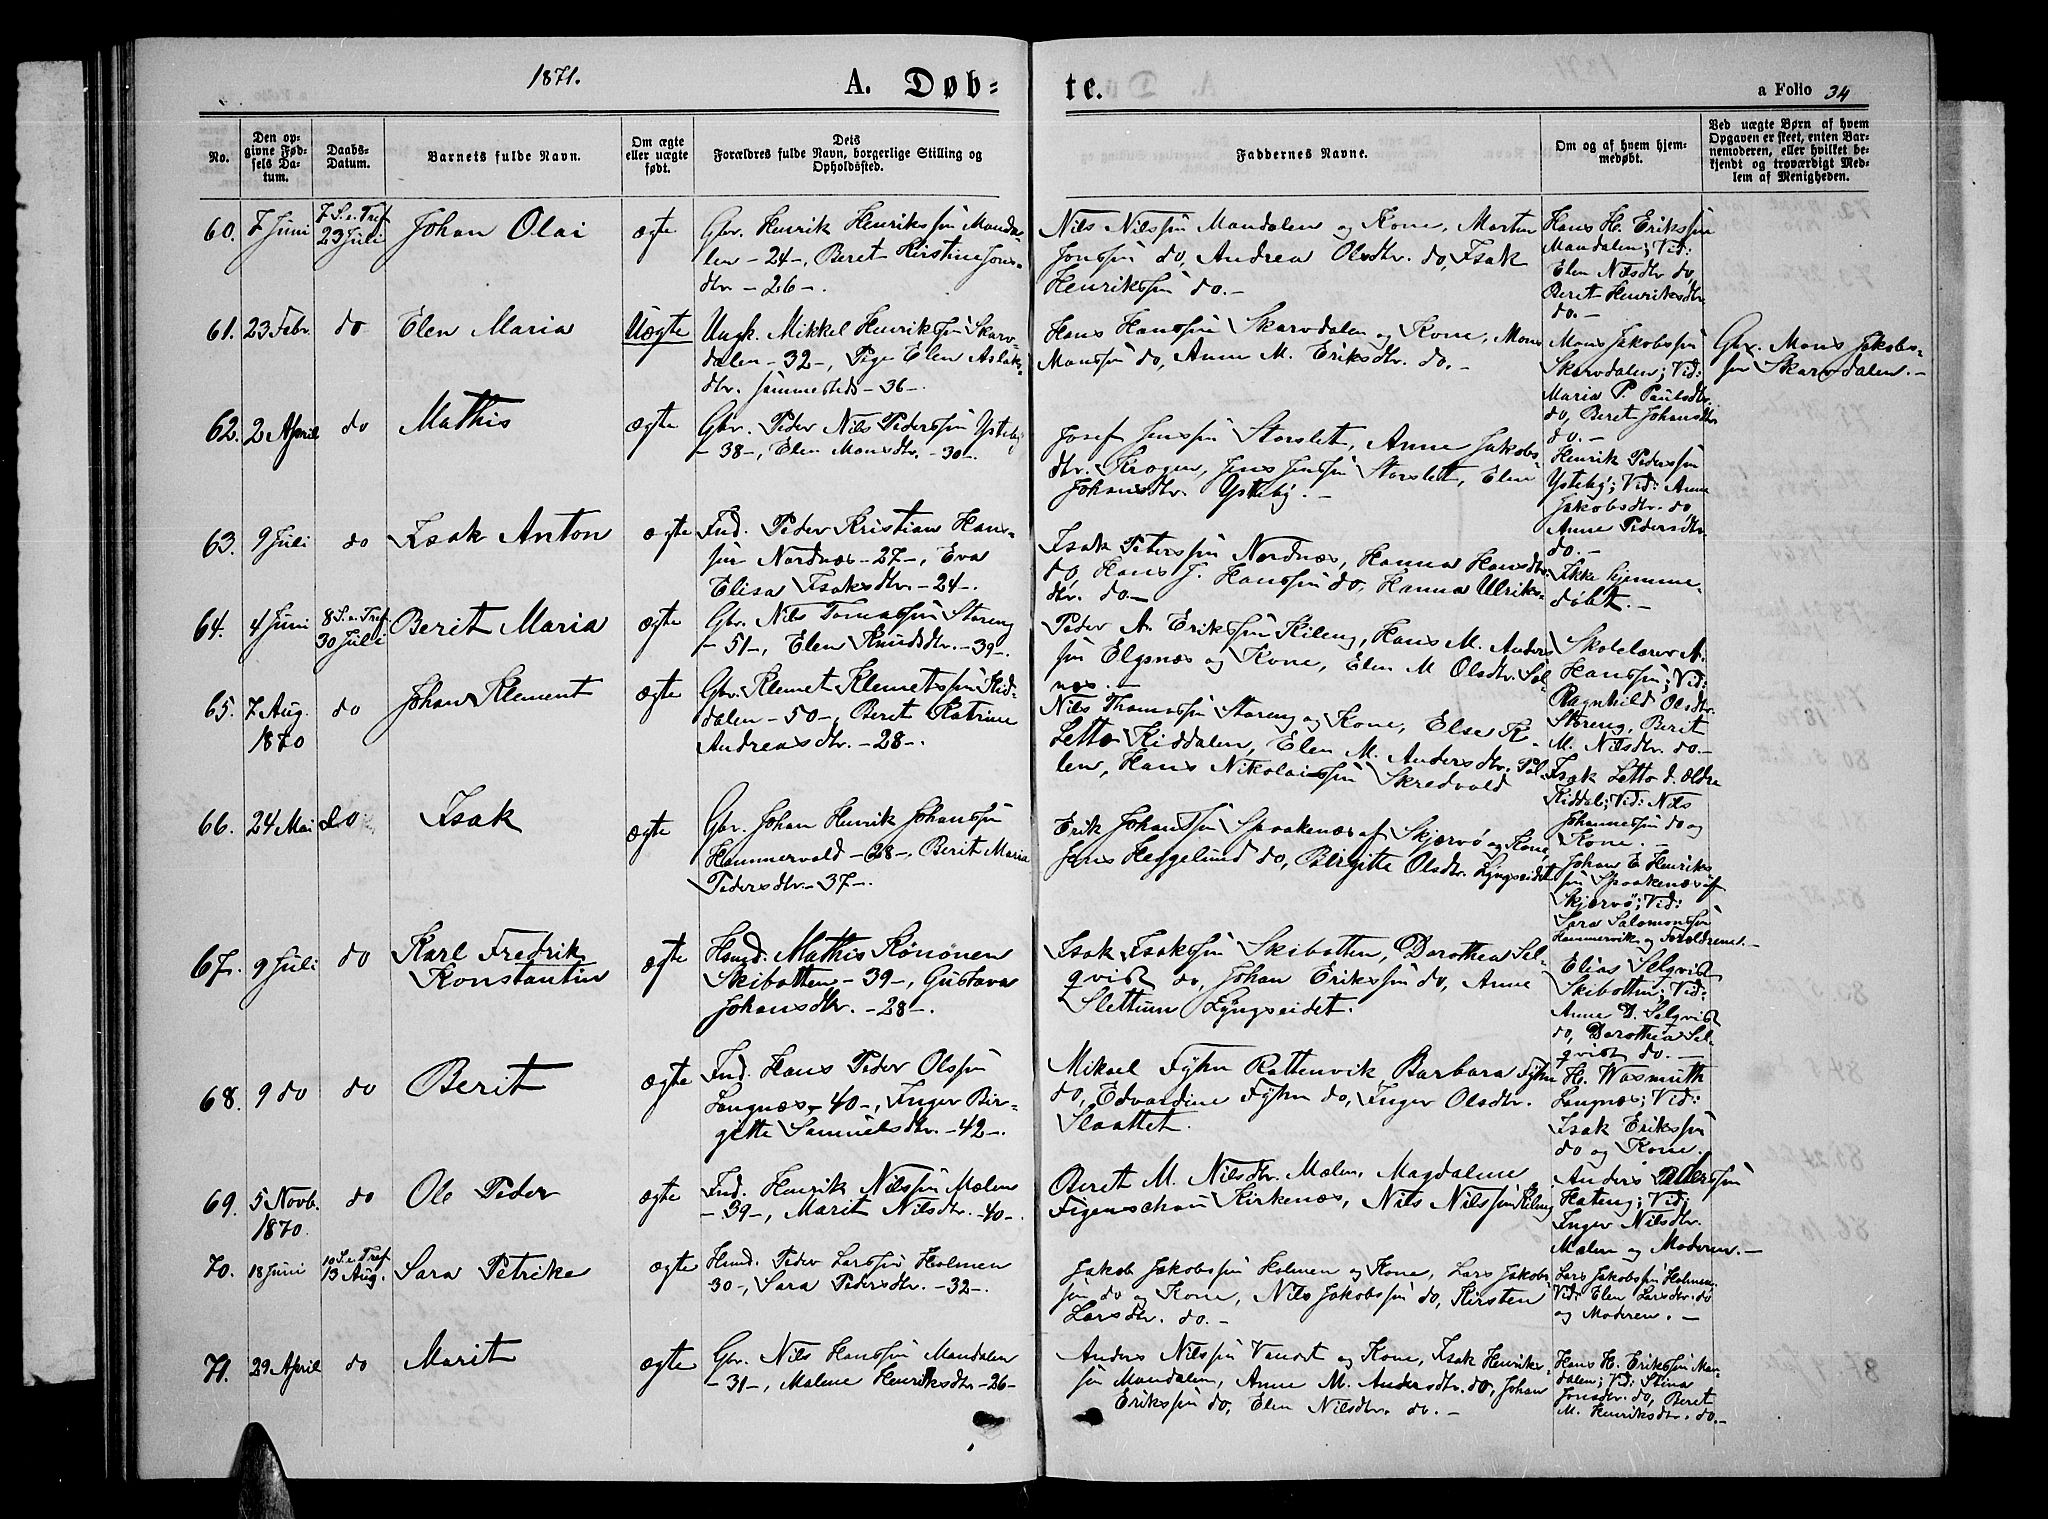 1871.
A. Døb-
te.
a Folio 34
No.
Den op-
givne Fød-
sels Da-
tum.
Daabs-
Datum.
Barnets fulde Navn.
Om ægte
eller uægte
født.
Dets
Forældres fulde Navn, borgerlige Stilling og
Opholdssted.
Faddernes Navne.
Om og af hvem hjem-
medøbt.
Ved uægte Børn af hvem
Opgaven er skeet, enten Bar-
nemoderen, eller hvilket be-
kjendt og troværdigt Med-
lem af Menigheden.
60. 7 Juni
7 S. e. Tref.
23 Juli
Johan Olai
ægte
Gbr. Henrik Henrikssøn Manda-
len -24-, Beret Kirstine Jons-
dtr -26-.
Nils Nilssøn Mandalen og Kone, Morten
Jonssøn do, Andrea Olsdtr. do, Isak
Henrikssøn do.-
Hans H. Erikssøn
Mandalen; Vid:
Elen Nilsdtr do,
Beret Henriksdtr.
do.-
61. 23 Febr.
do
Elen Maria
Uægte
Ungk. Mikkel Henrikssøn Skarv-
dalen -32-, Pige Elen Aslaks-
dtr. sammesteds -36-.
Hans Hanssøn Skarvdalen og Kone, Mons
Monssøn do, Anne M. Eriksdtr. do.-
Mons Jakobssøn
Skarvdalen; Vid:
Maria P. Paulsdtr.
do, Beret Johansdtr
do.-
Gbr. Mons Jakobs-
søn Skarvdalen.-
62. 2 April
do
Mathis
ægte
Gbr. Peder Nils Pederssøn Ysteby
-38-, Elen Monsdtr. -30-.
Josef Jenssøn Storslett, Anne Jakobs-
dtr. Krogen, Jens Jenssøn Storslett, Elen
Johansdtr. Ysteby.-
Henrik Pederssøn
Ysteby; Vid: Anne
Jakobsdtr. do
Anne Pedersdtr.
do.-
63. 9 Juli
do
Isak Anton
ægte
Ind. Peder Kristian Hans-
søn Nordnæs -27-, Eva
Elisa Isaksdtr. -24-.
Isak Peterssøn Nordnæs, Hanna Hansdtr.
do, Hans J. Hanssøn do, Hanna Ulriks-
dtr. do.-
Ikke hjemme-
døbt.-
64. 4 Juni
8 S. e. Tref.
30 Juli
Berit Maria
ægte
Gbr. Nils Tomassøn Storeng
-51-, Elen Knudsdtr. -39-.
Peder A. Erikssøn Kileng, Hans M. Anders
søn Elgsnæs og Kone, Elen M Olsdtr. Sol-
næs.-
Skolelærer A.
Hanssøn; Vid:
Ragnhild Olsdtr.
Storeng, Berit
M. Nilsdtr. do.-
65. 7 Aug.
1870
do
Johan Klement
ægte
Gbr. Klemet Klemetssøn Kid-
dalen -50-, Beret Katrine
Andreasdtr. -28-.
Nils Thomassøn Storeng og Kone, Else K.
Letto Kiddalen, Elen M. Andersdtr. Pol-
len, Hans Nikolaissøn Skredvold
Isak Letto d. ældre
Kiddal; Vid: Nils
Johannessøn do og
Kone.-
66. 24 Mai
do
Isak
ægte
Gbr. Johan Henrik Johanssøn
Hammervold -28-, Berit Maria
Pedersdtr. -37-.
Erik Johanssøn Spaakenæs af Skjærvø og Kone,
Jens Heggelund do, Birgitte Olsdtr. Lyngseidet
Johan E Henriks
søn Spaakenæs af
Skjærvø; Vid:
Sara Salomonssøn
Hammervik og Forældrene.-
67. 9 Juli
do
Karl Fredrik
Konstantin
ægte
Hsmd. Mathis Könönen
Skibotten -39-, Gustava
Johansdtr. -28-.
Isak Isakssøn Skibotten, Dorothea Sel-
qvist do, Johan Erikssøn do, Anne
Slettum Lyngseidet.
Elias Selqvist
Skibotten; Vid:
Anne D. Selqvist
do, Dorothea Sel-
qvist do.-
68. 9 do
do
Berit
ægte
Ind. Hans Peder Olssøn
Langnæs -40-, Inger Bir-
gitte Samuelsdtr. -42-.
Mikael Fyhn Rattenvik Barbara Fyhn
do, Edvardine Fyhn do, Inger Olsdtr.
Slaattet.
H. Waxmuth
Langnæs; Vid:
Isak Erikssøn
do og Kone.
69. 5 Novb.
1870
do
Ole Peder
ægte
Ind. Henrik Nilssøn Malen
-39-, Marit Nilsdtr. -40-.
Beret M. Nilsdtr. Malen, Magdalene
Figenschau Kirkenæs, Nils Nilssøn Kileng
Anders Pederssøn
Hateng; Vid:
Inger Nilsdtr.
Malen og Moderen.-
70. 18 Juni
10 S. e. Tref.
13 Aug.
Sara Petrike
ægte
Hsmd. Peder Larssøn Holmen
30-, Sara Pedersdtr. -32-.
Jakob Jakobssøn Holmen og Kone, Lars Jakobs-
søn do og Kone, Nils Jakobssøn do, Kirsten
Larsdtr. do.-
Lars Jakobssøn Holmen
Vid: Elen Larsdtr. do
og Moderen.-
71. 29 April
do
Marit
ægte
Gbr. Nils Hanssøn Mandalen
-31-, Malene Henriksdtr. -26-
Anders Nilssøn Vandet og Kone, Isak Henriks-
søn Mandalen, Anne M. Andersdtr. do, Johan
Erikssøn do, Elen Nilsdtr. do.-
Hans H. Erikssøn Man-
dalen; Vid: Stina
Jonsdtr. do, Beret
M. Henriksdtr. do.-